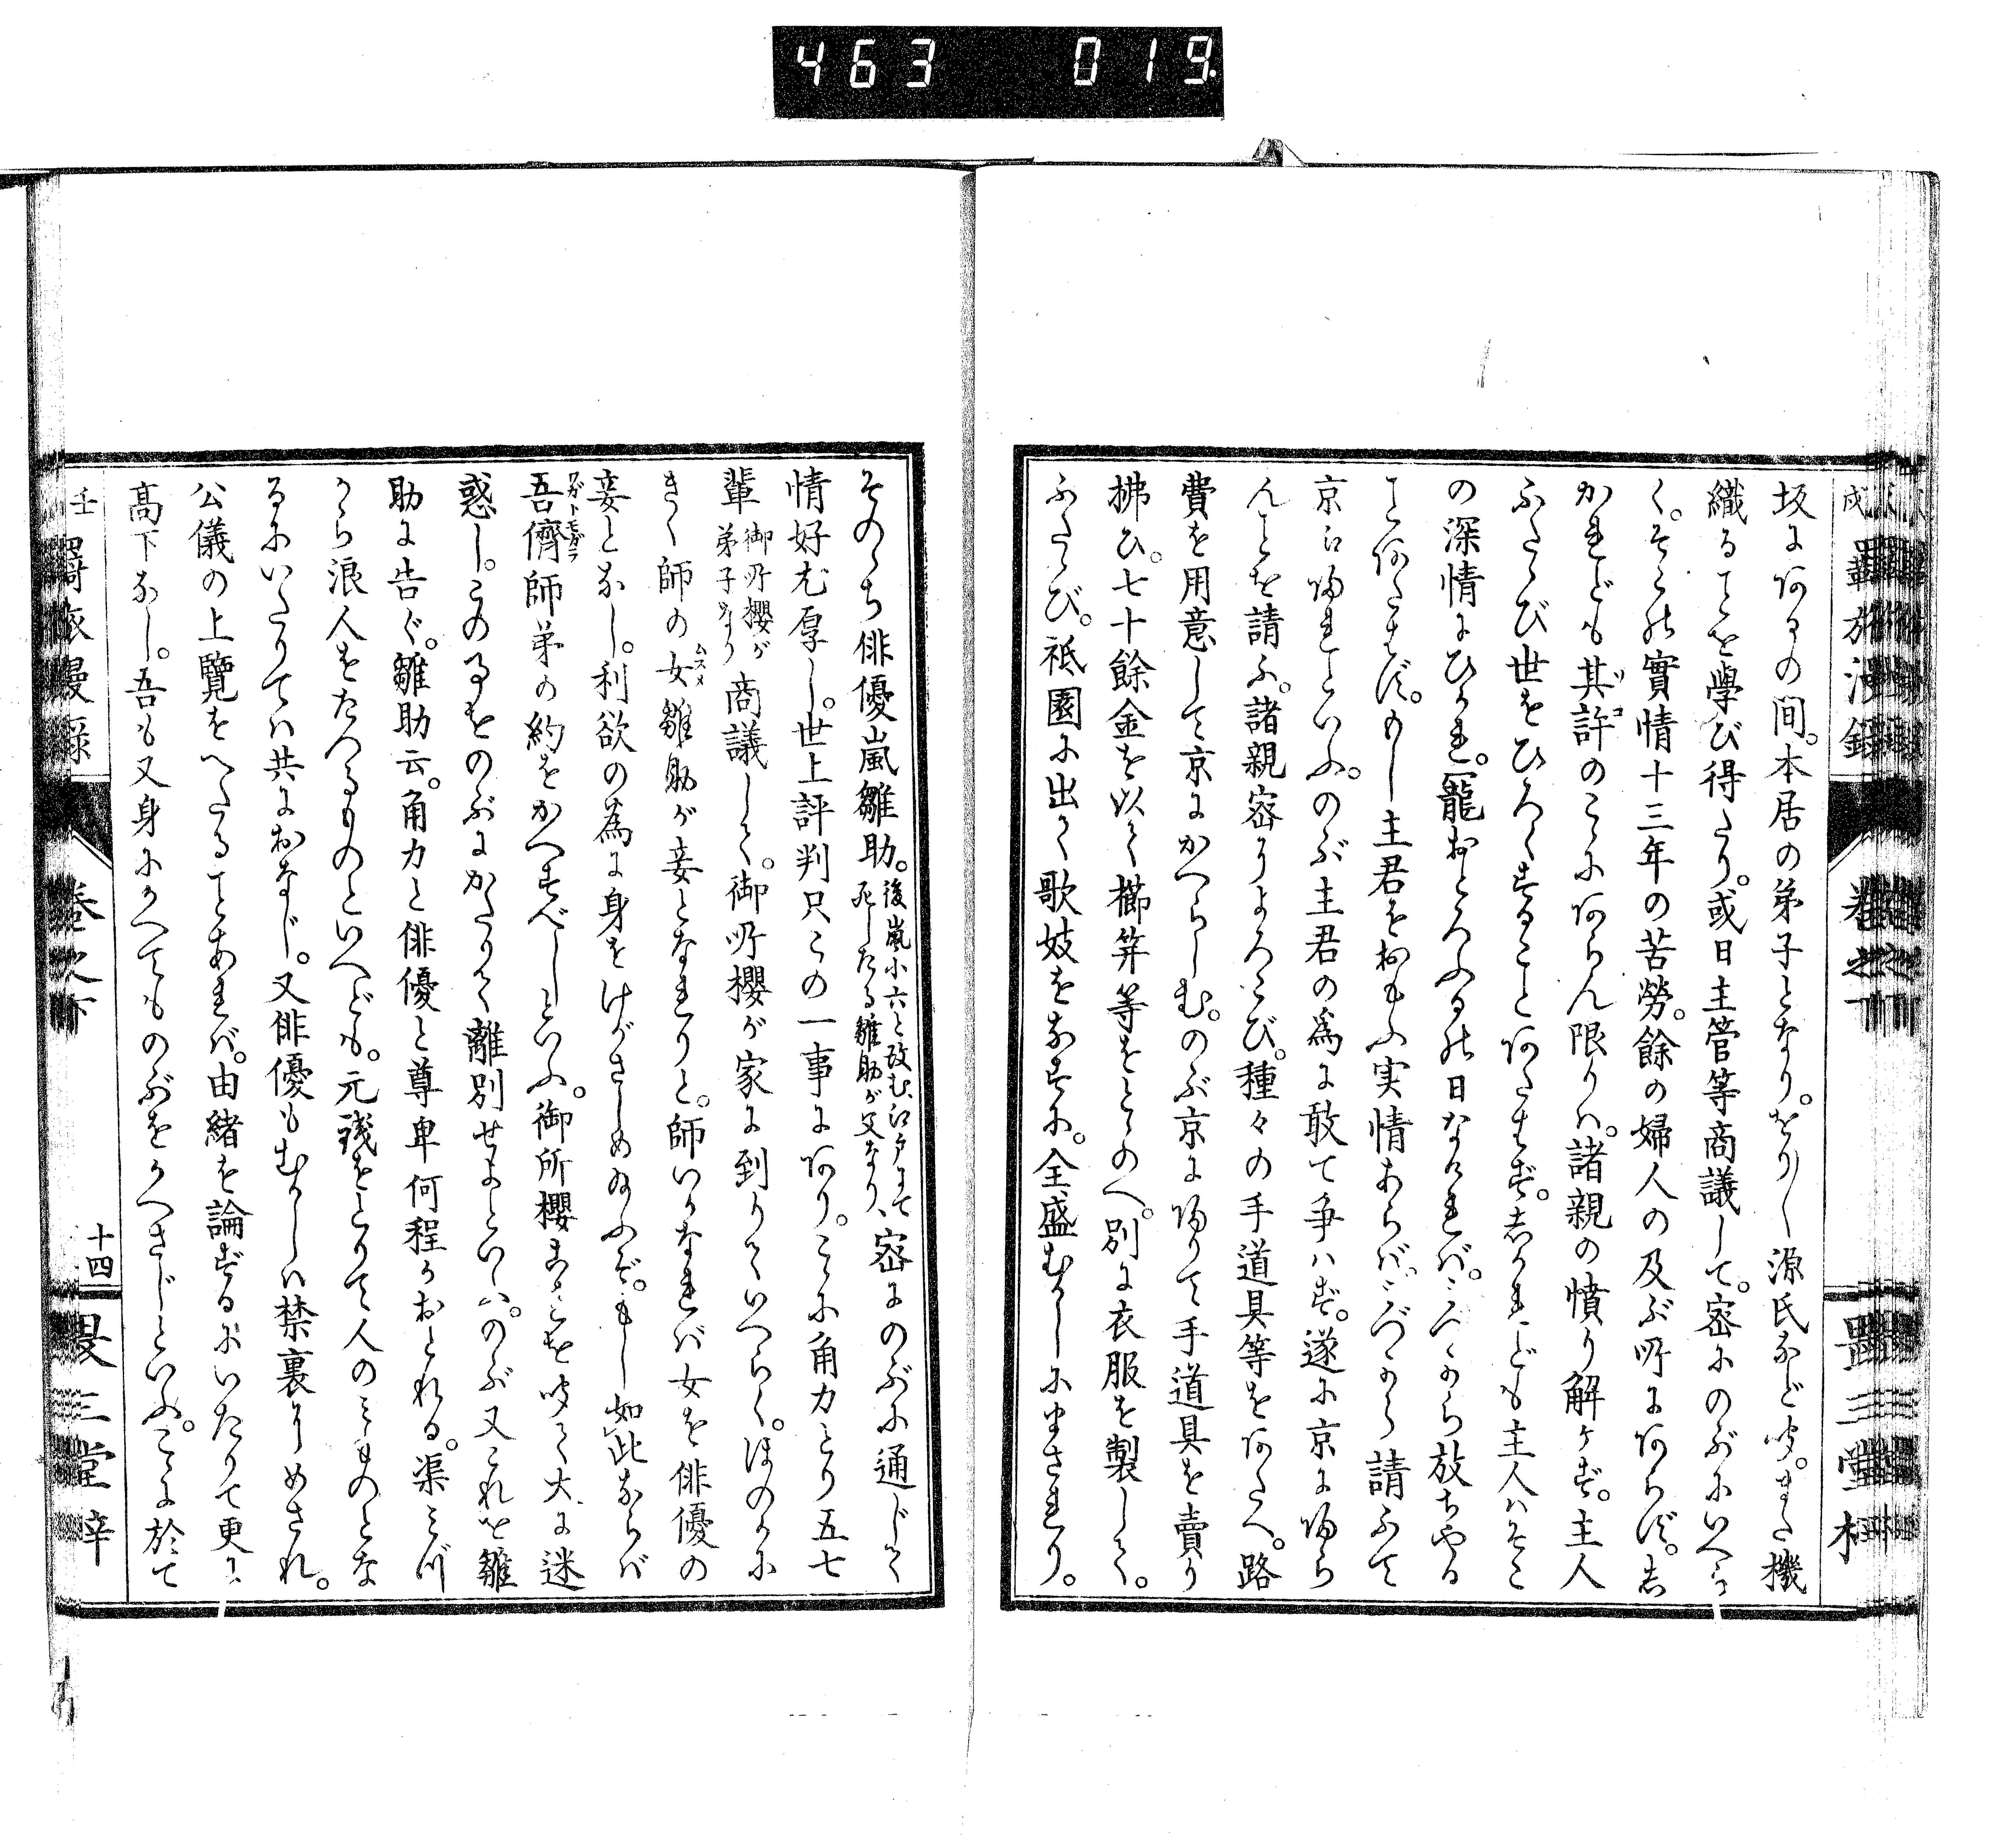 463 019
羇旅漫録 巻之下
坂にあるの間。本居の弟子となり。をり〳〵源氏など吟。また機
織ることを學び得たり。或日主管等商議して。密にのぶにいへら
く。そこの實情十三年の苦勞。餘の婦人の及ぶ所にあらず。志
かれども其許のこゝにあらん限りハ。諸親の憤り解ケず。主人
ふたゝび世をひろくすることあたはず。志かれども主人ハそこ
の深情にひかれ。寵おとろふるの日なければ。みづから放ちやる
ことあたはず。もし主君をおもふ実情あらバ。みづから請ふて
京に帰れといふ。のぶ主君の為に敢て争ハず。遂に京に帰ら
んことを請ふ。諸親密によろこび。種々の手道具等をあたへ。路
費を用意して京にかへらしむ。のぶ京に帰りて手道具を賣り
拂ひ。七十餘金を以て櫛笄等をとゝのへ。別に衣服を製して。
ふたゝび。祇園に出て歌妓をなすに。全盛むかしにまされり。
そのゝち俳優嵐雛助。後嵐小六と改む、江戸にて死したる雛助が父なり、密にのぶに通じて
情好尤厚し。世上評判只この一事にあり。こゝに角力とり五七
輩御所櫻が弟子なり商議して。御所櫻が家に到りていへらく。ほのかに
きく師の女雛助が妾となれりと。師いかなれバ女を俳優の
妾となし。利欲の為に身をけがさしめ給ふぞ。もし如此ならバ
吾儕師弟の約をかへすべしといふ。御所櫻これを吟て大に迷
惑し。このよしをのぶにかたりて離別せよといへバ。のぶ又これを雛
助に告ぐ。雛助云。角力と俳優と尊卑何程かおとれる。渠ミづ
から浪人をたつるものといへども。元錢をとりて人のミものとな
るにいたりてハ共におなじ。又俳優もむかしハ禁裏りめされ。
公儀の上覧をへたることあれバ。由緒を論ずるにいたりて更に
高下なし。吾も又身にかへてものぶをかへさじといふ。こゝに於て
羇旅漫録 巻之下 十四